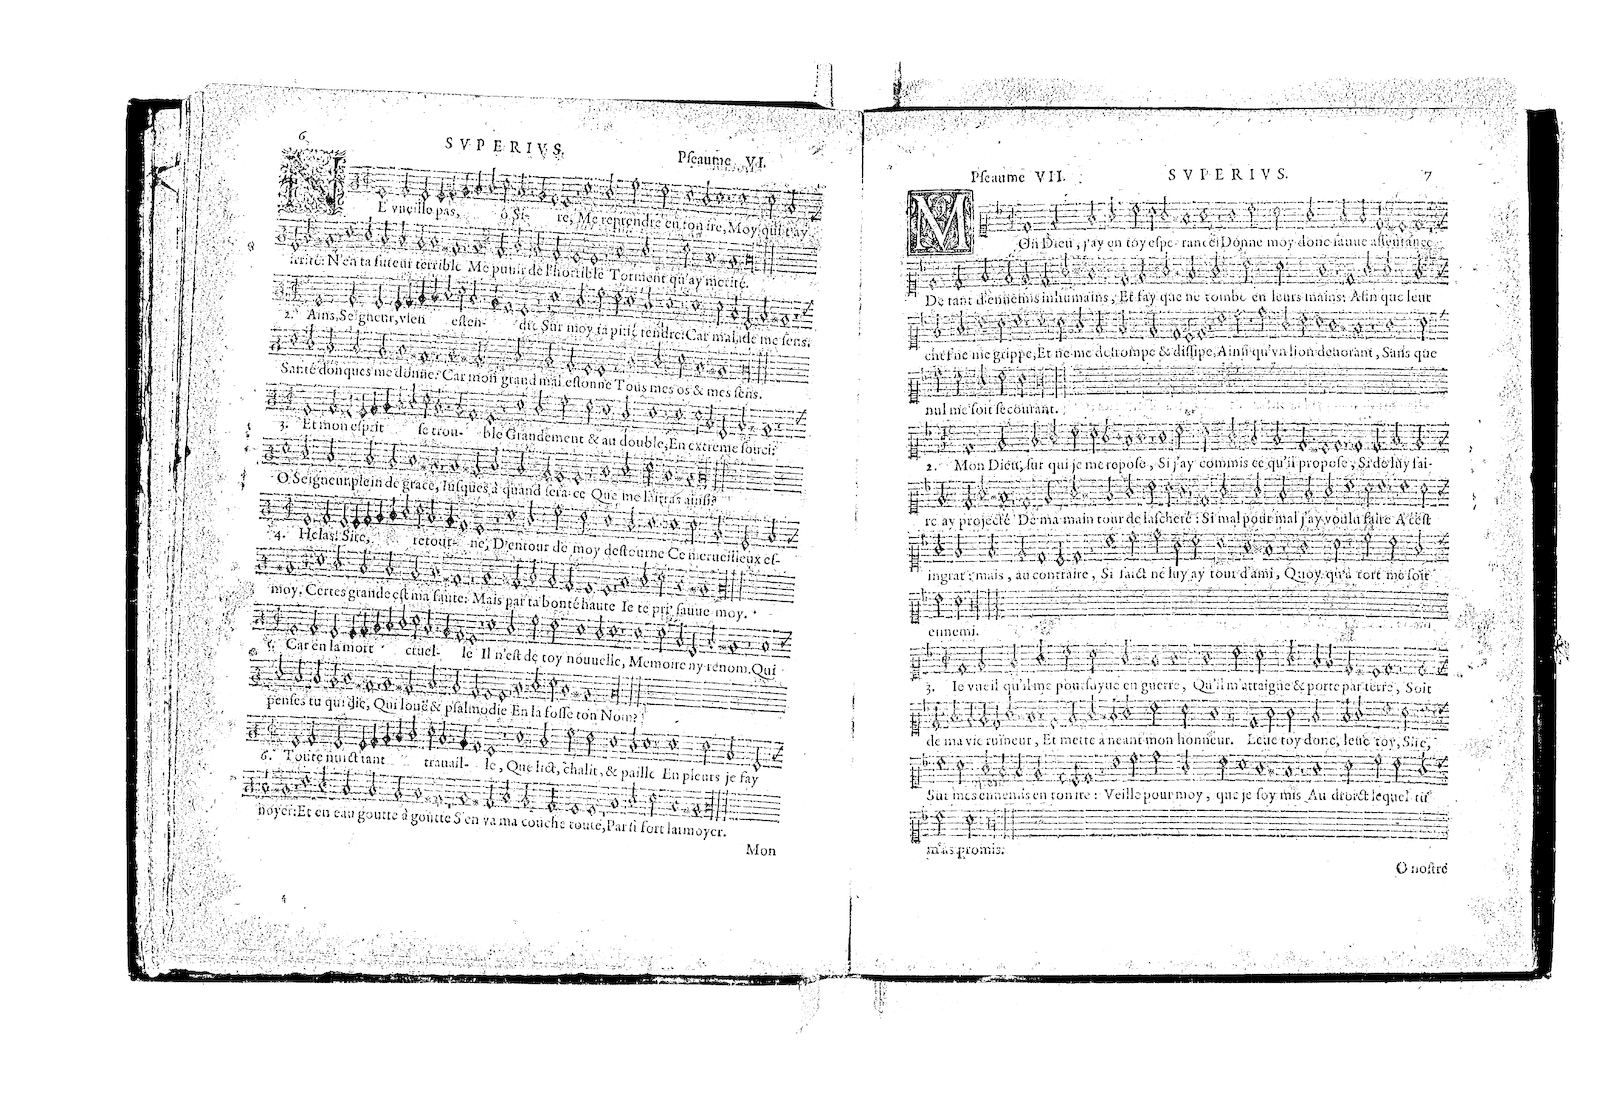 6
SVPERIVS.
Pſeaume VI.
NE vueille pas, ô Si- re, Me reprendre en ton ire, Moy qui t'ay
irrité: N'en ta fureur terrible Me punir de l'horrible Torment qu'ay merité.
2. Ains, Seigneur, vien eſten- dre Sur moy ta pitié tendre: Car malade me ſens.
Santé donques me donne: Car mon grand mal eſtonne Tous mes os & mes ſens.
3. Et mon eſprit ſe trou- ble Grandement & au double, En extreme ſouci:
O Seigneur plein de grace, Iuſques à quand ſera-ce Que me lairras ainſi?
4. Helas! Sire, retour- ne, D'entour de moy deſtourne Ce merueilleux eſ-
moy. Certes grande eſt ma faute: Mais par ta bonté haute Ie te pri' ſauue moy.
5. Car en la mort cruel- le Il n'eſt de toy nouuelle, Memoire ny renom. Qui
penſes tu qui die, Qui louë & pſalmodie En la foſſe ton Nom?
6. Toute nuict tant trauail- le, Que lict, chalit, & paille En pleurs je fay
noyer: Et en eau goutte à goutte S'en va ma couche toute, Par ſi fort larmoyer.
Mon
Pſeaume VII.
SVPERIVS.
7
MOn Dieu, j'ay en toy eſpe- rance: Donne moy donc ſauue aſſeurance
De tant d'ennemis inhumains, Et fay que ne tombe en leurs mains: Afin que leur
chef ne me grippe, Et ne me deſrompe & diſſipe, Ainſi qu'vn lion deuorant, Sans que
nul me ſoit ſecourant.
2. Mon Dieu, ſur qui je me repoſe, Si j'ay commis ce qu'il propoſe, Si de luy fai-
re ay projecté De ma main tour de laſcheté: Si mal pour mal j'ay voulu faire A ceſt
ingrat: mais, au contraire, Si faict ne luy ay tour d'ami, Quoy qu'à tort me ſoit
ennemi.
3. Ie vueil qu'il me pourſuyue en guerre, Qu'il m'attaigne & porte par terre, Soit
de ma vie ruineur, Et mette à neant mon honneur. Leue toy donc, leue toy, Sire,
Sur mes ennemis en ton ire: Veille pour moy, que je ſoy mis Au droict lequel tu
m'as promis.
O noſtre